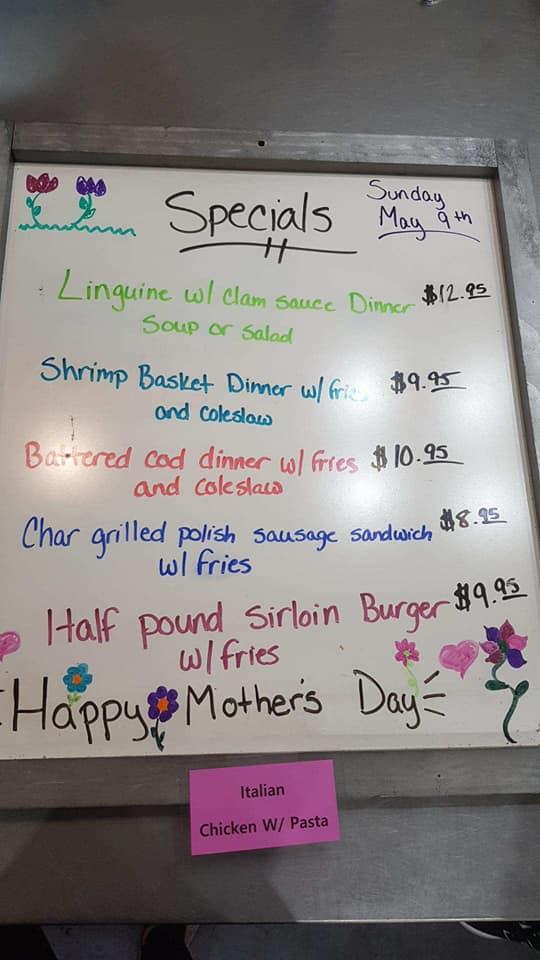 Specials
Sunday
May 9th
Linguine w/ Clam sauce Dinner $12.95
Soup or Salad
Shrimp Basket Dinner w/ fries $9.95
and coleslaw
Battered cod dinner w/ fries $10.95
and coleslaw
Char grilled polish sausage sandwich $8.95
w/ fries
Half pound Sirloin Burger $9.95
w/ fries
Happy Mother's Day
Italian
Chicken W/ Pasta